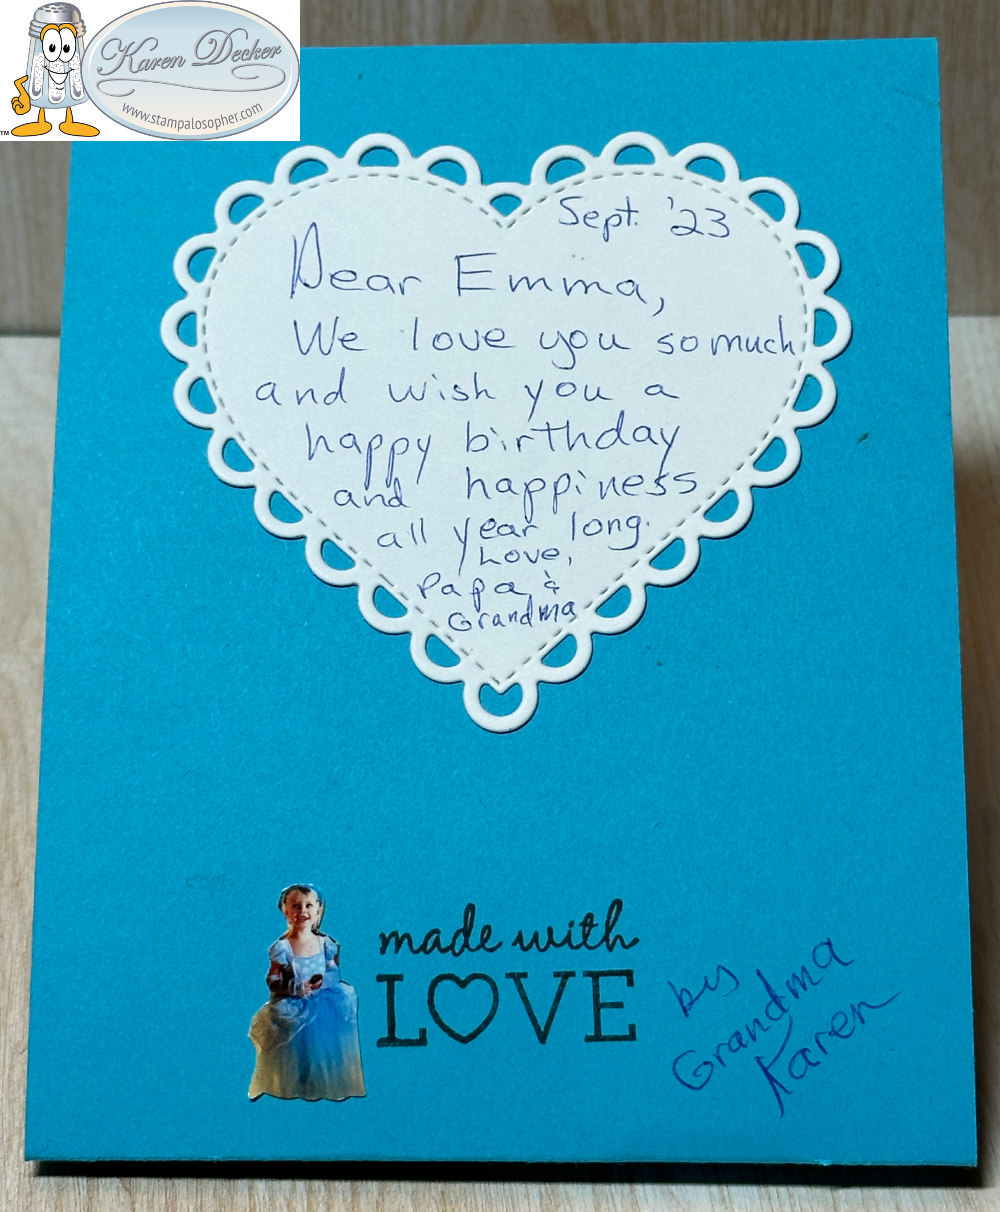 Karen Decker
www.stampalosopher.com
TM
Sept. '23
Dear Emma,
We love you so much
and wish you a
happy birthday
and happiness
all year long.
Love,
Papa &
Grandma
made with
LOVE
by
Grandma
Karen